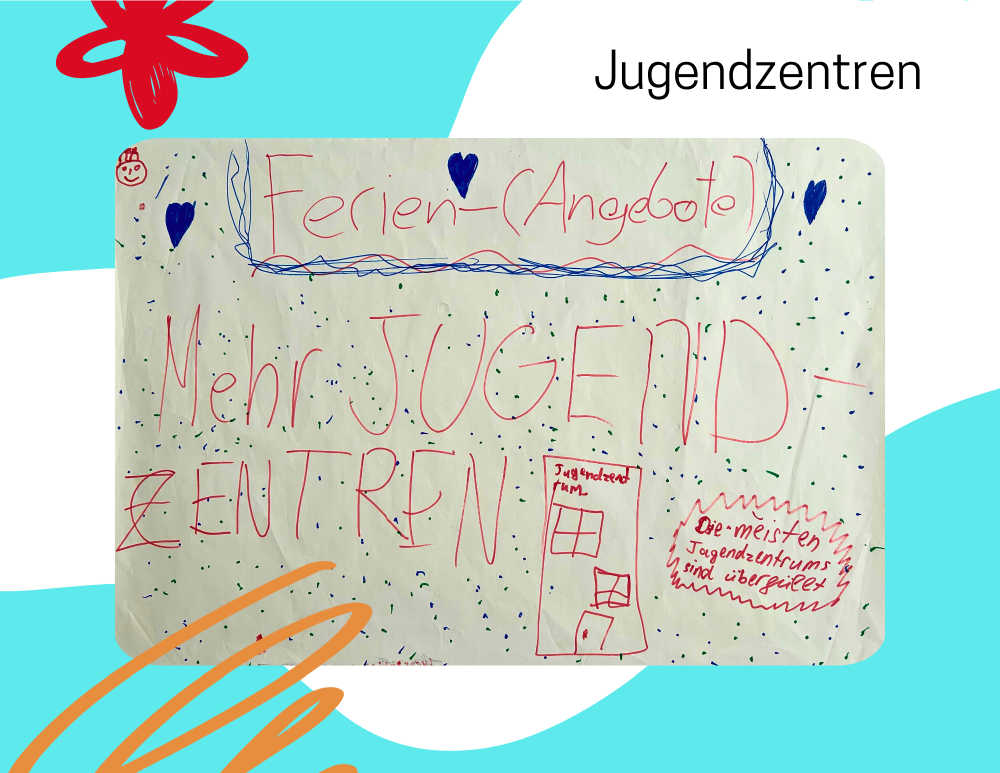 Jugendzentren
Ferien-(Angebote)
Mehr JUGEND-
ZENTREN
Jugendzent
rum
Die meisten
Jugendzentrums
sind übergüllt